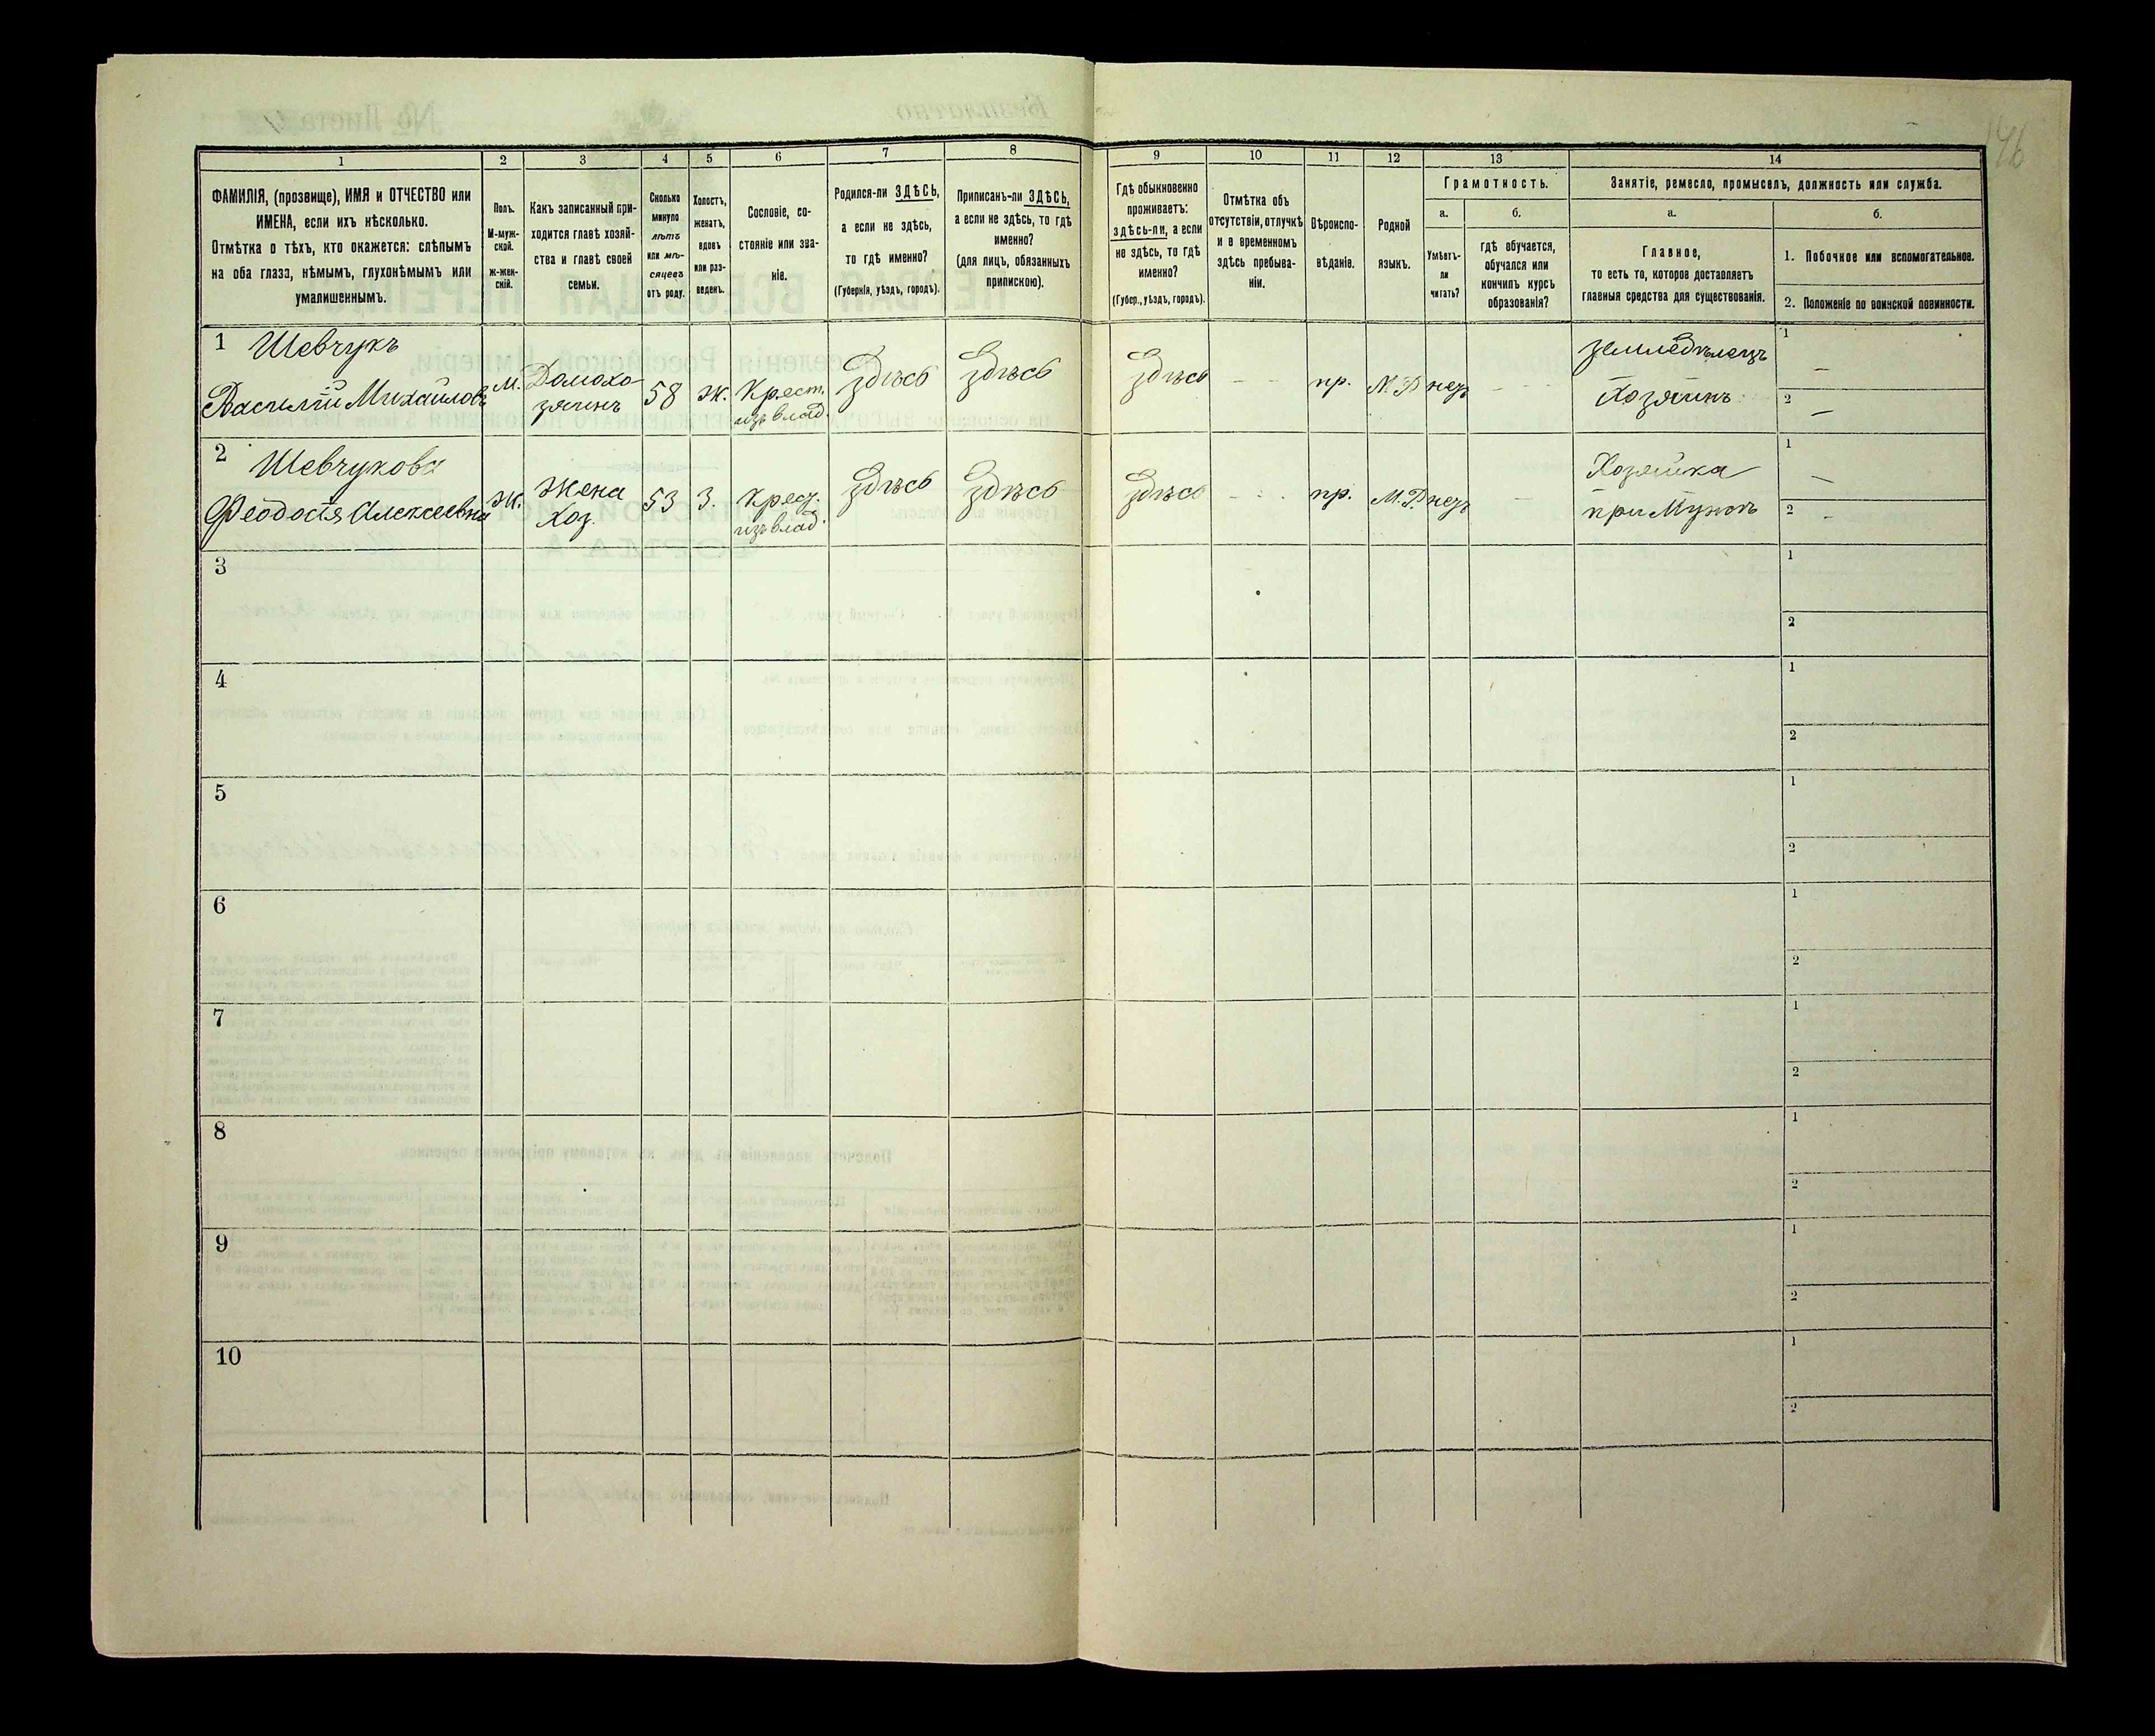 146
1 2 3 4 5 6 7 8 9 10 11 12 13 14
ФАМИЛІЯ, (прозвище), ИМЯ и ОТЧЕСТВО или
ИМЕНА, если ихъ нѣсколько.
Отмѣтка о тѣхъ, кто окажется: слѣпымъ
на оба глаза, нѣмымъ, глухонѣмымъ или
умалишеннымъ.
Полъ.
М-муж-
ской.
Ж-жен-
скій.
Какъ записанный при-
ходится главѣ хозяй-
ства и главѣ своей
семьи.
Сколько
минуло
лѣтъ
или мѣ-
сяцевъ
отъ роду.
Холостъ,
женатъ,
вдовъ
или раз-
веденъ.
Сословіе, со-
стояніе или зва-
ніе.
Родился-ли ЗДѢСЬ,
а если не здѣсь,
то гдѣ именно?
(Губернія, уѣздъ, городъ).
Приписанъ-ли ЗДѢСЬ,
а если не здѣсь, то гдѣ
именно?
(для лицъ, обязанныхъ
припискою).
Гдѣ обыкновенно
проживаетъ:
здѣсь-ли, а если
не здѣсь, то гдѣ
именно?
(Губер., уѣздъ, городъ).
Отмѣтка объ
отсутствіи, отлучкѣ
и о временномъ
здѣсь пребыва-
ніи.
Вѣроиспо-
вѣданіе.
Родной
языкъ.
Грамотность.
а.
Умѣетъ-
ли
читать?
б.
гдѣ обучается,
обучался или
кончилъ курсъ
образованія?
Занятіе, ремесло, промыселъ, должность или служба.
а.
Главное,
то есть то, которое доставляетъ
главныя средства для существованія.
б.
1. Побочное или вспомогательное.
2. Положеніе по воинской повинности.
1 Шевчукъ
Василій Михайловъ
М.
Домохо-
зяинъ
58
Ж.
Крест.
изъ влад.
Здѣсь
Здѣсь
Здѣсь
— —
пр.
М.Р.
негр
— —
земледѣлецъ
Хозяинъ
1 —
2 —
2 Шевчукова
Феодосія Алексеевна
Ж.
Жена
Хоз.
53
З.
Крест.
изъ влад.
Здѣсь
Здѣсь
Здѣсь
пр.
М.Р.
негр
—
Хозяйка
при Мужѣ
1 —
2 —
3
1
2
4
1
2
5
1
2
6
1
2
7
1
2
8
1
2
9
1
2
10
1
2